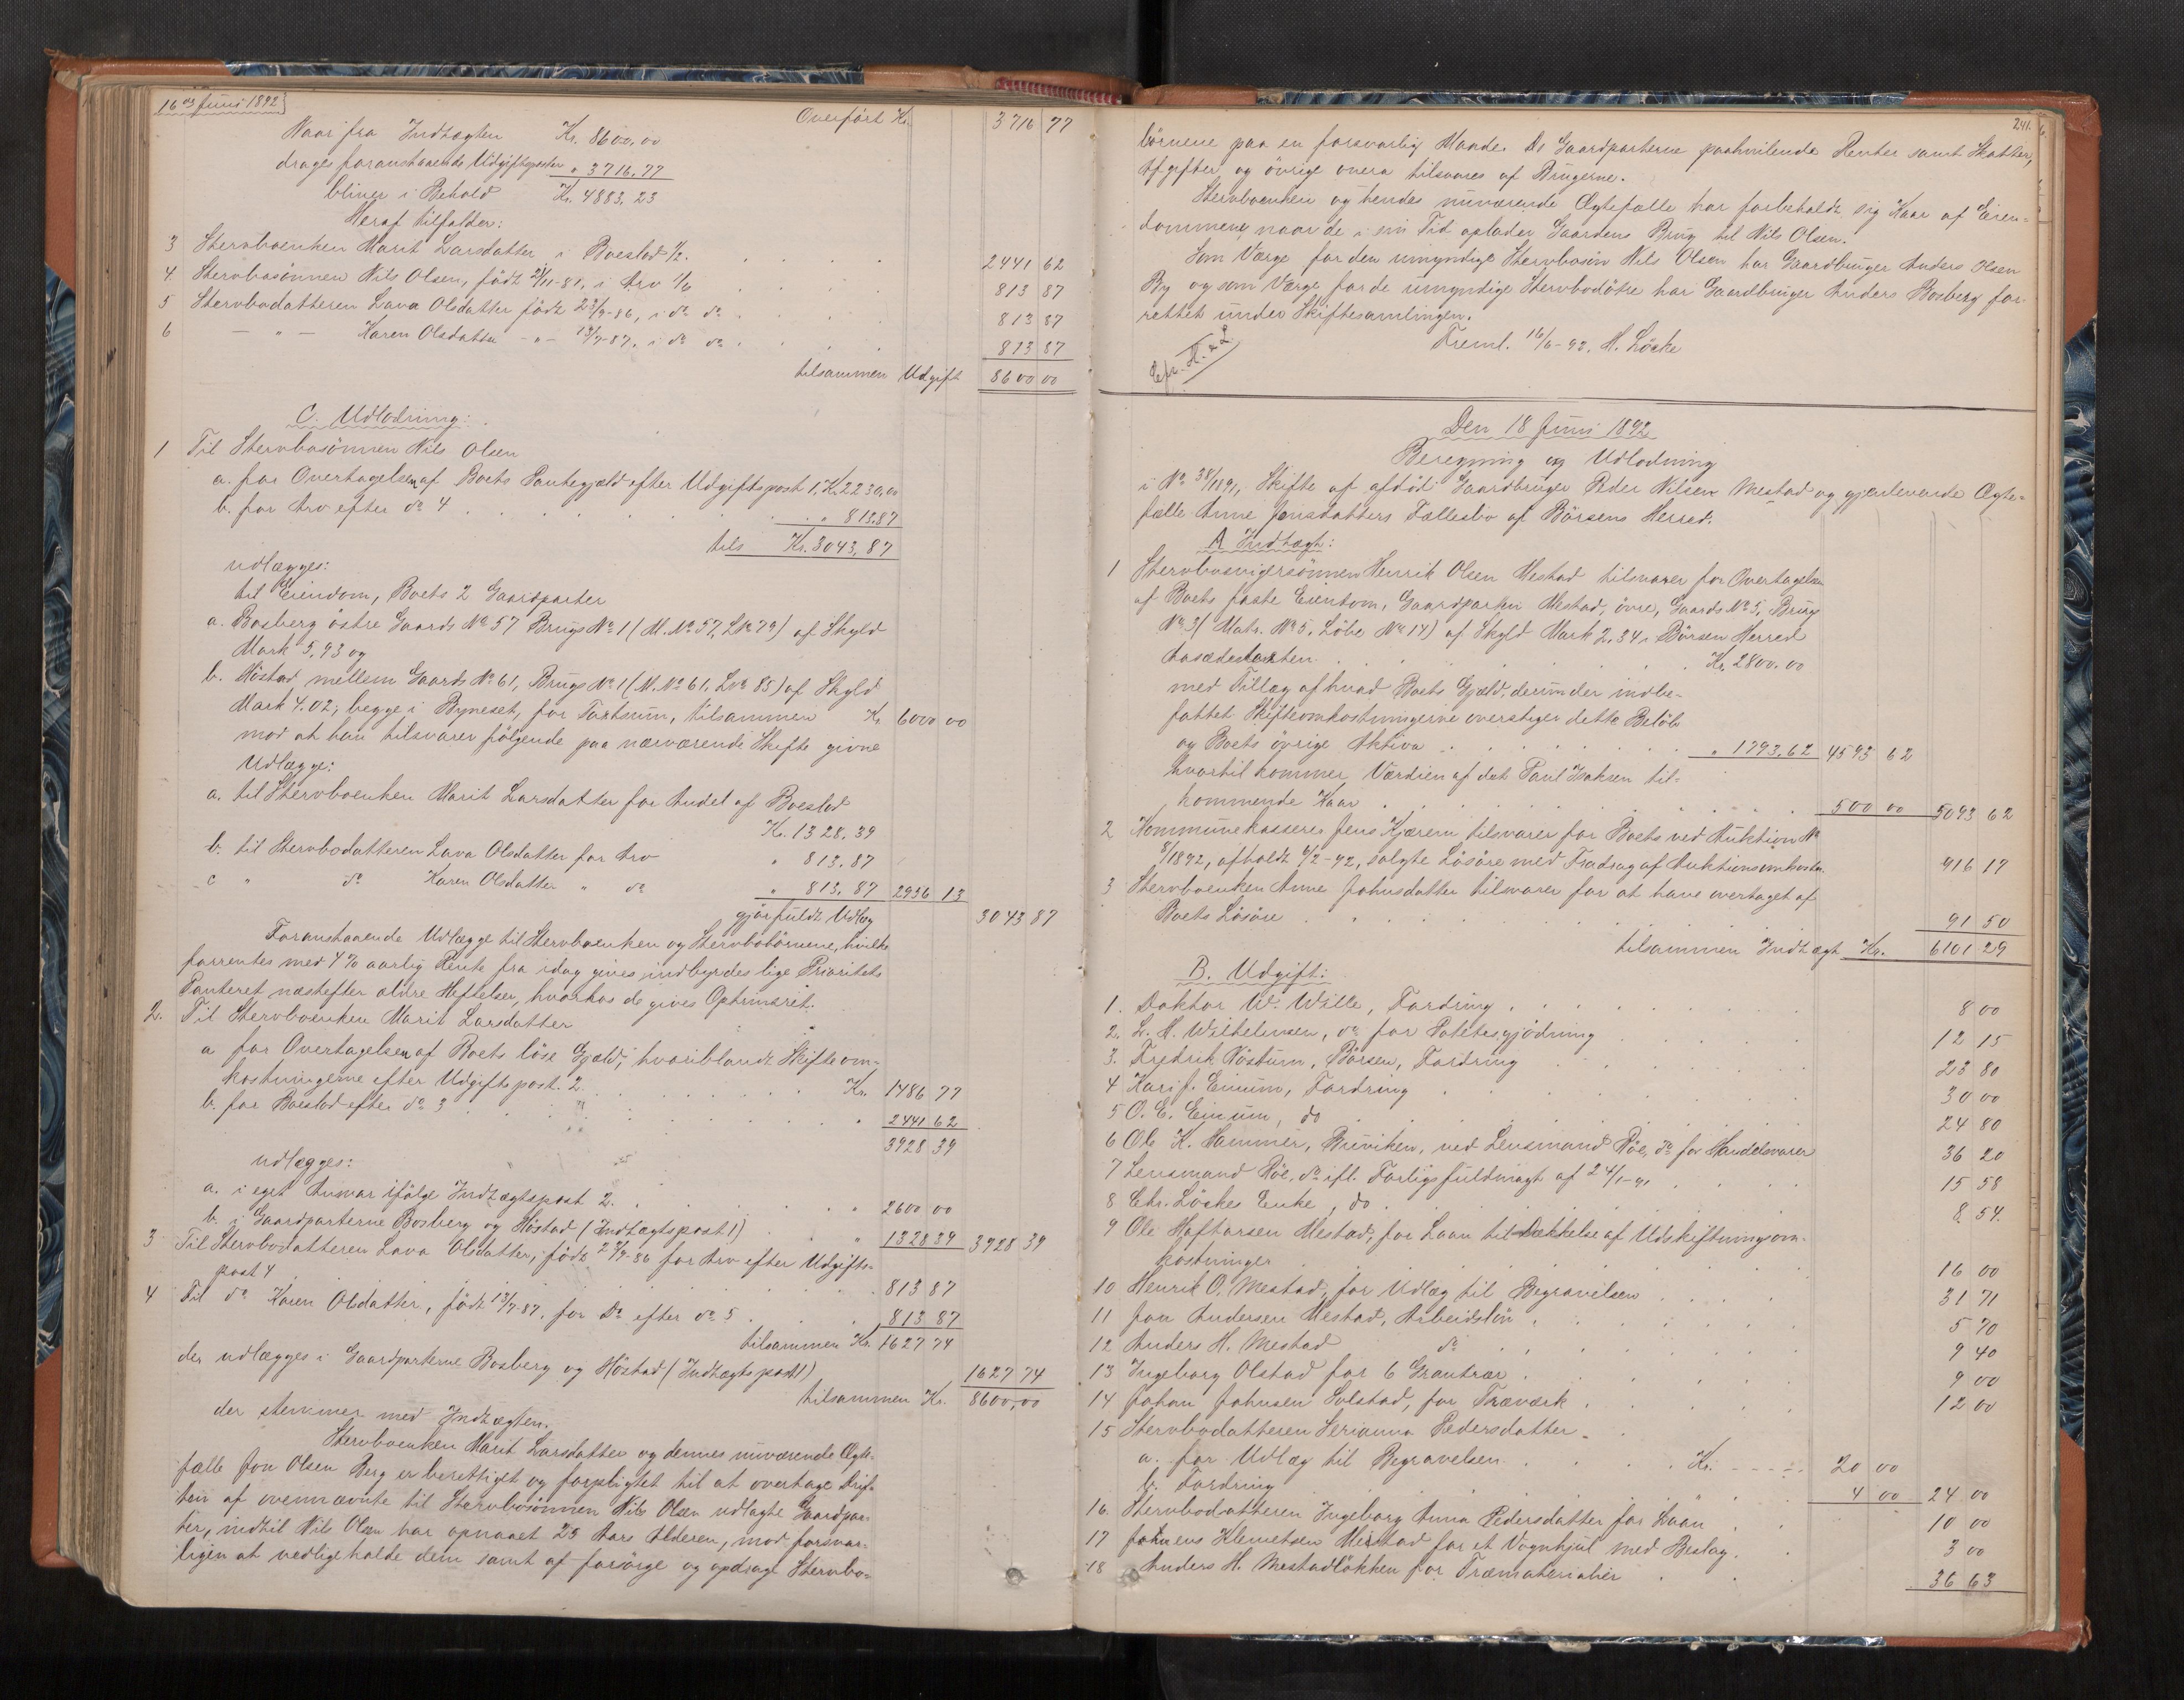 16de Juni 1892
Overført Kr. 3716 77
Naar fra Indtægten Kr. 8600,00
drages foranstaaende Udgiftsposter " 3716,77
bliver i Behold Kr. 4883,23
Heraf tilfalder:
3 Stervboenken Marit Larsdatter, i Boeslod 1/2. 2441 62
4 Stervbosönnen Nils Olsen, født 21/11-81, i Arv 1/6 813 87
5 Stervbodatteren Lava Olsdatter født 23/9-86, i do do 813 87
6 — " — Karen Olsdatter - " - 13/7-87, i do do 813 87
tilsammen Udgift 8600 00
C. Udlodning:
1 Til Stervbosönnen Nils Olsen
a. for Overtagelsen af Boets Pantegjæld efter Udgiftspost 1, Kr. 2230,00
b. for Arv efter do 4 " 813,87
tils Kr. 3043,87
udlægges:
til Eiendom, Boets 2 Gaardparter
a. Bosberg östre Gaards No 57 Brugs No 1 (M. No 57, LNo 79) af Skyld
Mark 5,93 og
b. Höstad mellem Gaards No 61, Brugs No 1 (M. No 61, LNo 85) af Skyld
Mark 4.02, begge i Byneset, for Taxtsum, tilsammen Kr 6000 00
mod at han tilsvarer følgende paa nærværende Skifte givne
Udlægge:
a. til Stervboenken Marit Larsdatter for Andel af Boeslod
Kr. 1328,39
b. til Stervbodatteren Lava Olsdatter for Arv " 813,87
c " do Karen Olsdatter " do " 813,87 2956 13
gjør fuldt Udlæg 3043 87
Foranstaaende Udlægge til Stervboenken og Stervbobörnene, hvilke
forrentes med 4% aarlig Rente fra idag gives indbyrdes lige Prioritets
Panteret næstefter ældre Heftelser, hvorhos de gives Optrinsret.
2. Til Stervboenken Marit Larsdatter
a for Overtagelsen af Boets löse Gjæld, hvoriblandt Skifteom-
kostningerne efter Udgiftspost 2. Kr. 1486 77
b. for Boeslod efter do 3 " 2441 62
3928 39
udlægges:
a. i eget Ansvar ifölge Indtægtspost 2. " 2600 00
b. i Gaardparterne Bosberg og Höstad (Indtægtspost 1) " 1328 39 3928 39
3 Til Stervbodatteren Lava Olsdatter, født 23/9-86 for Arv efter Udgifts-
post 4 813 87
4 Til do Karen Olsdatter, født 13/7-87, for do efter do 5 813 87
tilsammen Kr. 1627 74
der udlægges i Gaardparterne Bosberg og Höstad (Indtægtspost 1) 1627 74
tilsammen Kr. 8600,00
der stemmer med Indtægten.
Stervboenken Marit Larsdatter og dennes nuværende Ægte-
fælle Jon Olsen Berg er berettiget og forpligtet til at overtage Drif-
ten af ovennævnte til Stervbosönnen Nils Olsen udlagte Gaardpar-
ter, indtil Nils Olsen har opnaaet 25 Aars Alderen, mod forsvar-
ligen at vedligeholde dem samt af forsörge og opdrage Stervbo-
241.
börnene paa en forsvarlig Maade. De Gaardparterne paahvilende Renter samt Skatter,
Afgifter og övrige onera tilsvares af Brugerne.
Stervboenken og hendes nuværende Ægtefælle har forbeholdt sig Kaar af Eien-
dommene, naar de i sin Tid oplader Gaardens Brug til Nils Olsen.
Som Værge for den umyndige Stervbosön Nils Olsen har Gaardbruger Anders Olsen
By og som Værge for de umyndige Stervbodötre har Gaardbruger Anders Bosberg for-
rettet under Skiftesamlingen.
Freml. 16/6-92. H. Löcke
Den 18 Juni 1892
Beregning og Udlodning
i No 38/1891, Skifte af afdöd Gaardbruger Peder Nilsen Mestad og gjenlevende Ægte-
fælle Anne Jonsdatters Fællesbo af Börsens Herred.
A Indtægt:
1 Stervbosvigersönnen Henrik Olsen Mestad tilsvarer for Overtagelsen
af Boets faste Eiendom, Gaardparten Mestad, övre, Gaards No 5, Brugs
No 3 (Matr. No 5. Löbe No 14) af Skyld Mark 2,34 i Börsen Herred
Aasædestaxten Kr. 2800,00
med Tillæg af hvad Boets Gjæld, derunder indbe-
fattet Skifteomkostningerne overstiger dette Belöb
og Boets övrige Aktiva " 1793,62 4593 62
hvortil kommer Værdien af det Paul Isaksen til-
kommende Kaar 500 00 5093 62
2 Kommunekasserer Jens Kjærem tilsvarer for Boets ved Auktion No
8/1892, afholdt 4/2-92, solgte Lösöre med Fradrag af Auktionsomkostn. 916 17
3 Stervboenken Anne Johnsdatter tilsvarer for at have overtaget af
Boets Lösöre 91 50
tilsammen Indtægt Kr. 6101 29
B. Udgift:
1. Doktor W. Wille, Fordring 8 00
2. L. H. Wilhelmsen, do for Potetesgjödning 12 15
3. Fredrik Röstum, Börsen, Fordring 23 80
4 Kari J. Einum, Fordring 30 00
5 O. E. Einum, do 24 80
6 Ole K. Hammer, Buviken, ved Lensmand Röe, do for Handelsvarer 36 20
7 Lensmand Röe, do ifl. Forligsfuldmagt af 24/1-91 15 58
8 Chr. Löckes Enke, do 8 54
9 Ole Haftorsen Mestad, for Laan til Dækkelse af Udskiftningsom-
kostninger 16 00
10 Henrik O. Mestad, for Udlæg til Begravelsen 31 71
11 Jon Andersen Mestad, Arbeidslön 5 70
12 Anders H. Mestad do 9 40
13 Ingeborg Olstad for 6 Grantrær 9 00
14 Johan Johnsen Solstad, for Træværk 12 00
15 Stervbodatteren Serianna Pedersdatter
a. for Udlæg til Begravelsen Kr. 20 00
b. Fordring 4 00 24 00
16. Stervbodatteren Ingeborg Anna Pedersdatter for Laan 10 00
17 Johnens Klemetsen Mestad for et Vognhjul med Beslag 3 00
18 Anders H. Mestadlökken for Træmaterialier 36 63